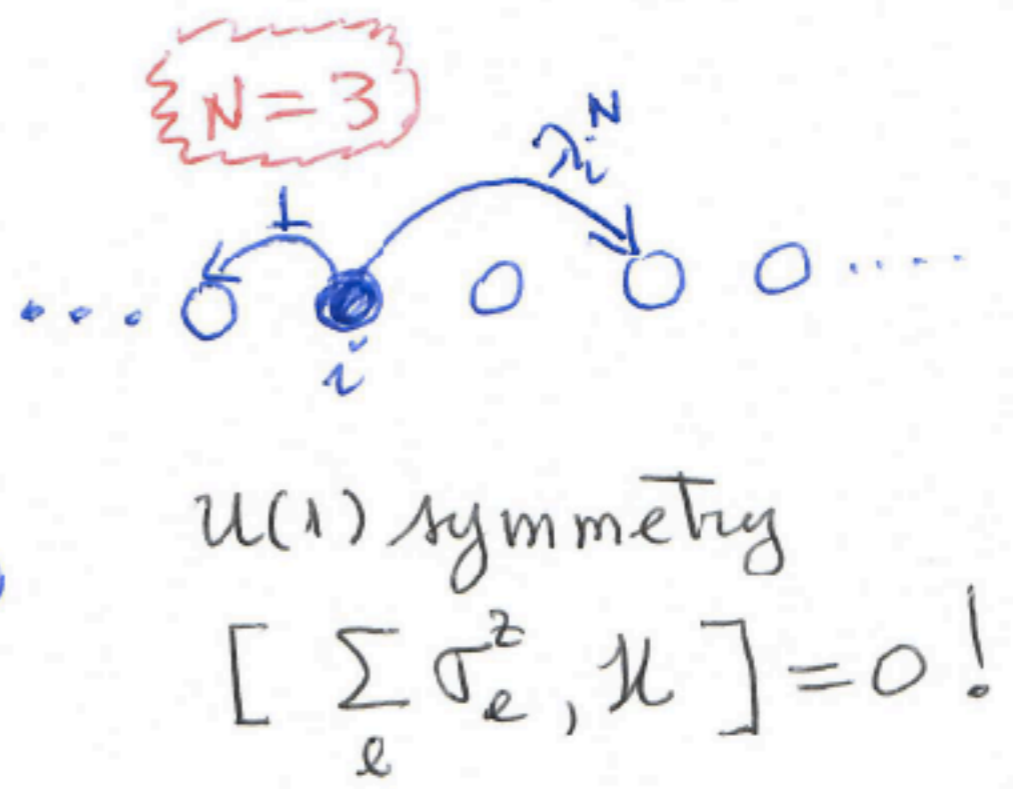 N=3
λ_i^N
1
i
U(1) symmetry
[ Σ_l σ_l^z, H ] = 0!